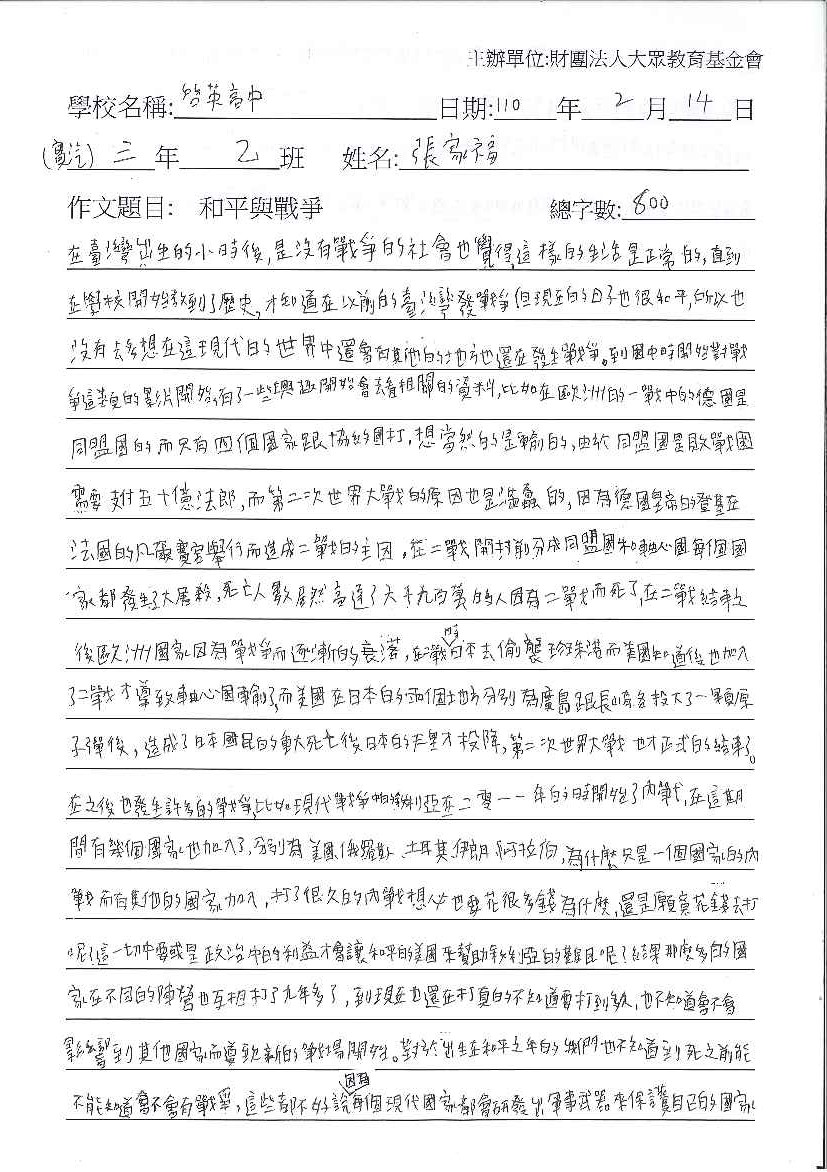 主辦單位:財團法人大眾教育基金會
學校名稱:啓英高中 日期:110 年 2 月 14 日
(實汽)三 年 乙 班 姓名:張家福
作文題目: 和平與戰爭 總字數:800
在臺灣出生的小時後,是沒有戰爭的社會也覺得這樣的生活是正常的,直到
在學校開始教到了歷史,才知道在以前的臺灣發戰爭但現在的日子也很和平,所以也
沒有去多想在這現代的世界中還會有其他的地方也還在發生戰爭。到國中時開始對戰
爭這類的影片開始有了一些興趣開始會去看相關的資料,比如在歐洲的一戰中的德國是
同盟國的而只有四個國家跟協約國打,想當然的是輸的,由於同盟國是敗戰國
需要支付五十億法郎,而第二次世界大戰的原因也是滿蠢的,因為德國皇帝的登基在
法國的凡爾賽宮舉行而造成二戰的主因。在二戰開打前分成同盟國和軸心國每個國
家都發生了大屠殺,死亡人數居然高達了六千九百萬的人因為二戰而死了,在二戰結束之
後歐洲國家因為戰爭而逐漸的衰落,在二戰時日本去偷襲珍珠港而美國知道後也加入
了二戰才導致軸心國輸了,而美國在日本的兩個地方分別為廣島跟長崎各投入了一顆原
子彈後,造成了日本國民的重大死亡後日本的天皇才投降,第二次世界大戰也才正式的結束了。
在之後也發生許多的戰爭,比如現代戰爭 敘利亞在二零一一年的時開始了內戰,在這期
間有幾個國家也加入了,分別為美國、俄羅斯、土耳其、伊朗、阿拉伯,為什麼只是一個國家的內
戰而有其他的國家加入,打了很久的內戰想必也要花很多錢為什麼,還是願意花錢去打
呢?這一切中要或是政治中的利益才會讓和平的美國來幫助敘利亞的難民呢?結果那麼多的國
家在不同的陣營也互相打了九年多了,到現在也還在打真的不知道要打到多久,也不知道會不會
影響到其他國家而導致新的戰場開始。對於出生在和平之年的我們也不知道到死之前能
不能知道會不會有戰爭,這些都不好說因為每個現代國家都會研發出軍事武器來保護自己的國家